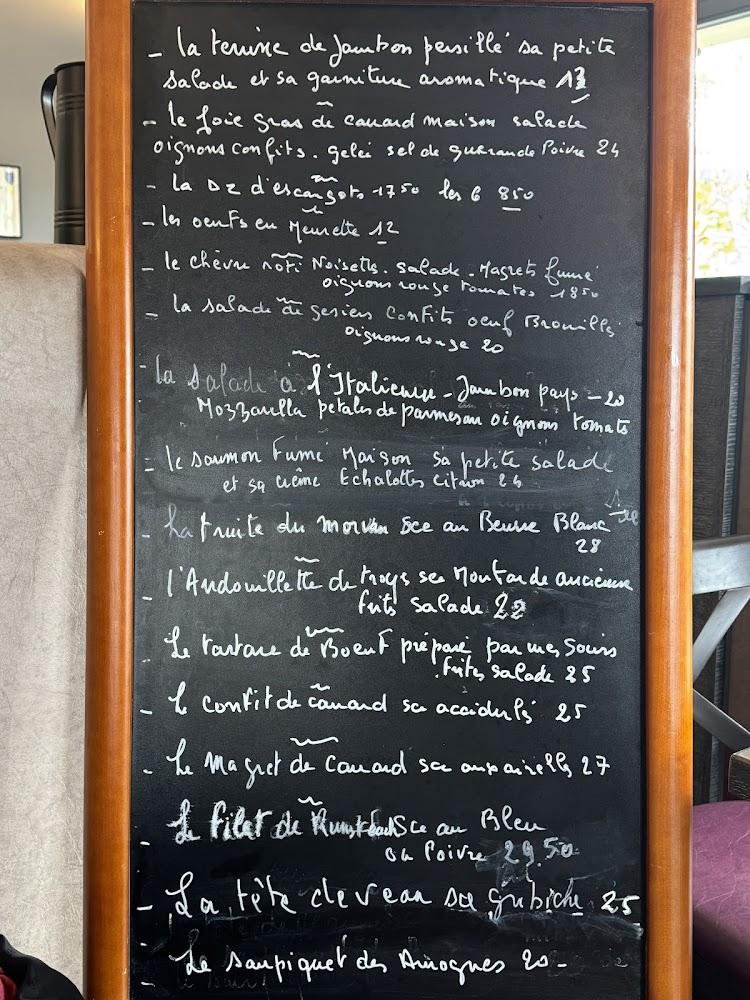 - la terrine de Jambon persillé sa petite
salade et sa garniture aromatique 13
- le foie gras de canard maison salade
oignons confits. gelée sel de Guerande Poivre 24
- la DZ d'escargots 1750 les 6 850
- les oeufs en Meurette 12
- le chèvre roti Noisette. salade. Magrets fumé
oignons rouge tomates 1850
- la salade de gesiers confits oeuf Brouillés
oignons rouge 20
- la salade à l'Italienne - Jambon pays - 20
Mozzarella petales de parmesan oignons tomate
- le saumon Fumé Maison sa petite salade
et sa crème Echalottes citron 24
- La truite du morvan sce au Beurre Blanc
28
- l'Andouillette de troyes sce Moutarde ancienne
frits salade 22
- Le tartare de Boeuf préparé par mes soins
frites salade 25
- le confit de canard sce acidulés 25
- Le Magret de Canard sce aux airelles 27
- Le filet de Rumsteack Sce au Bleu
ou Poivre 29.50
- La tête de veau sce gribiche 25
- Le saupiquet des Amognes 20 -